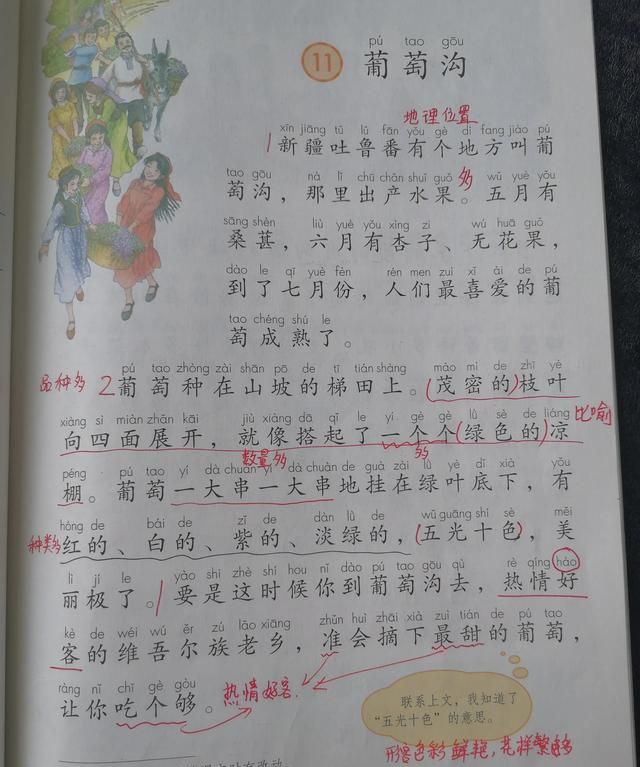 pú tao gōu
11 葡萄沟
地理位置
xīn jiāng tǔ lǔ fān yǒu gè dì fang jiào pú
1 新疆吐鲁番有个地方叫葡
tao gōu nà lǐ chū chǎn shuǐ guǒ 多 wǔ yuè yǒu
萄沟，那里出产水果。五月有
sāng shèn liù yuè yǒu xìng zi wú huā guǒ
桑葚，六月有杏子、无花果，
dào le qī yuè fèn rén men zuì xǐ ài de pú
到了七月份，人们最喜爱的葡
tao chéng shú le
萄成熟了。
pú tao zhòng zài shān pō de tī tián shàng mào mì de zhī yè
品种多 2 葡萄种在山坡的梯田上。(茂密的)枝叶
xiàng sì miàn zhǎn kāi jiù xiàng dā qǐ le yí gè gè lǜ sè de liáng
向四面展开，就像搭起了一个个(绿色的)凉 比喻
数量多 多
péng pú tao yí dà chuàn yí dà chuàn de guà zài lǜ yè dǐ xià yǒu
棚。葡萄一大串一大串地挂在绿叶底下，有
hóng de bái de zǐ de dàn lǜ de wǔ guāng shí sè měi
种类多 红的、白的、紫的、淡绿的，(五光十色)，美
lì jí le yào shi zhè shí hou nǐ dào pú tao gōu qù rè qíng hào
丽极了。要是这时候你到葡萄沟去，热情好
kè de wéi wú ěr zú lǎo xiāng zhǔn huì zhāi xià zuì tián de pú tao
客的维吾尔族老乡，准会摘下最甜的葡萄，
ràng nǐ chī gè gòu
让你吃个够。
热情好客.
联系上文，我知道了
“五光十色”的意思。
形容色彩鲜艳，花样繁多